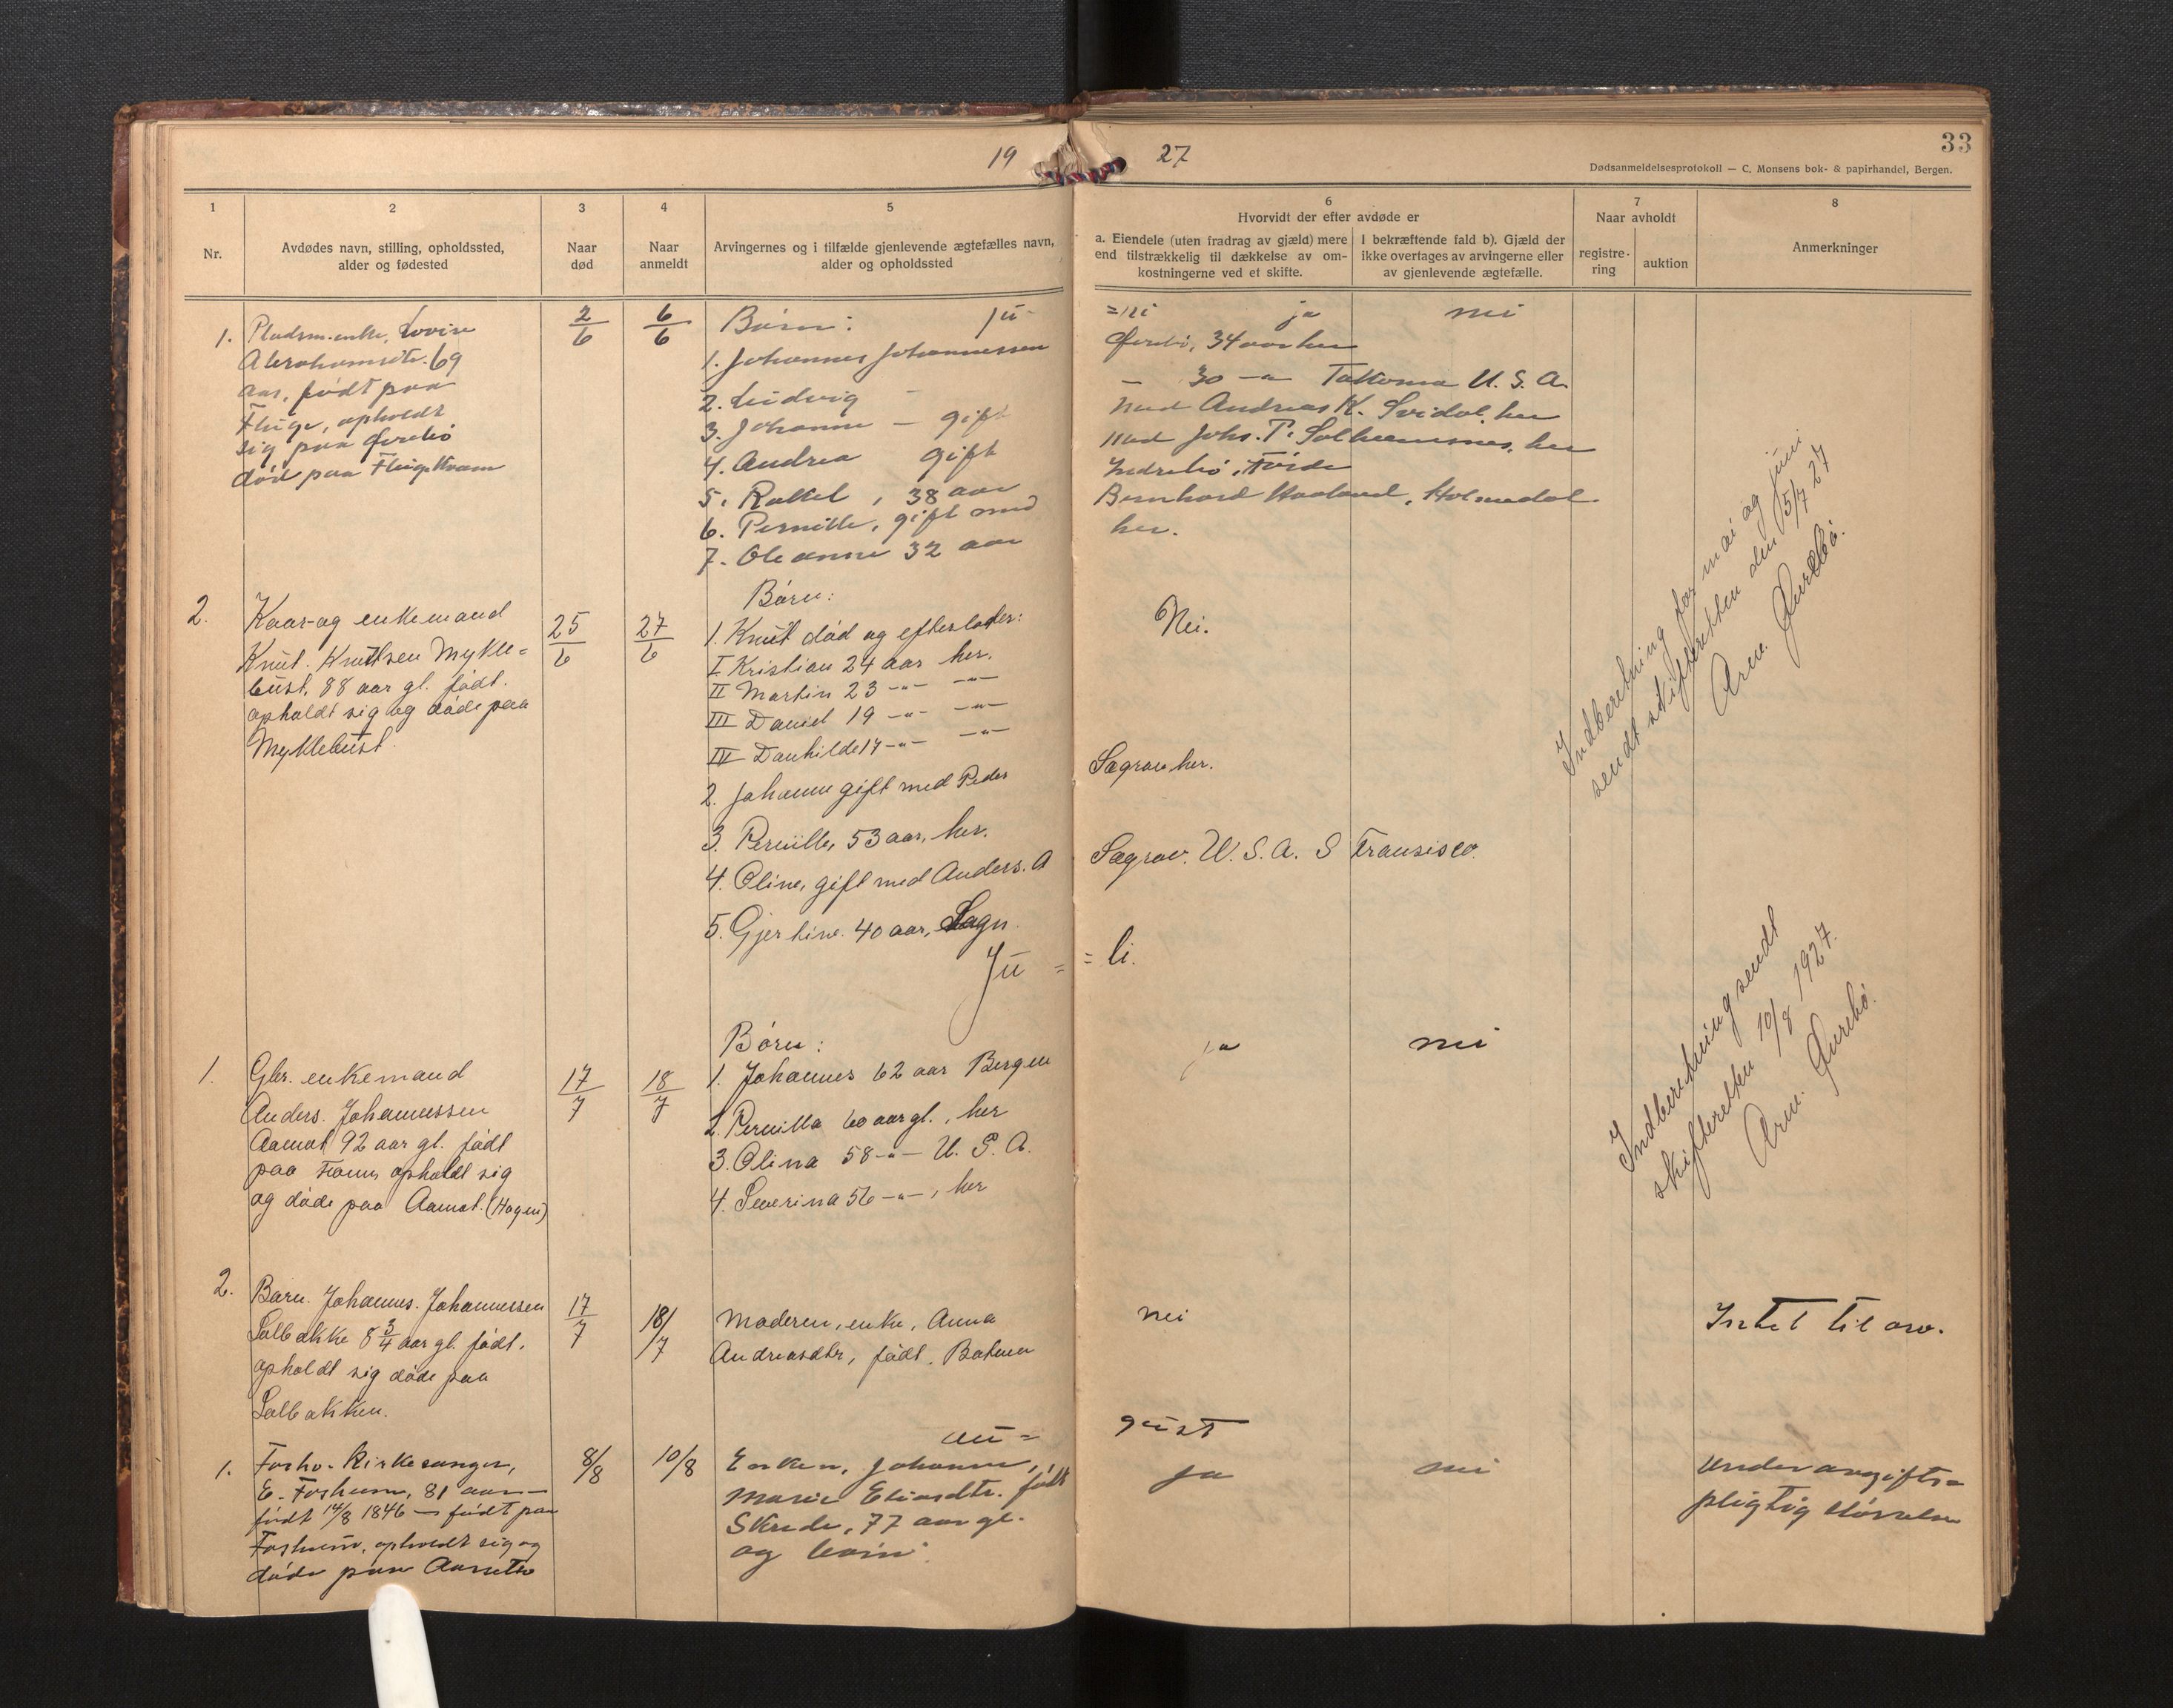 19 27
33
Dødsanmeldelsesprotokoll — C. Monsens bok- & papirhandel, Bergen.
1
2
3
4
5
6
7
8
Nr.
Avdødes navn, stilling, opholdssted,
alder og fødested
Naar
død
Naar
anmeldt
Arvingernes og i tilfælde gjenlevende ægtefælles navn,
alder og opholdssted
Hvorvidt der efter avdøde er
a. Eiendele (uten fradrag av gjæld) mere
end tilstrækkelig til dækkelse av om-
kostningerne ved et skifte.
I bekræftende fald b). Gjæld der
ikke overtages av arvingerne eller
av gjenlevende ægtefælle.
Naar avholdt
registre-
ring
auktion
Anmerkninger
ju- =ni
1. Pladsm.enke, Lovise
Abrahamsdtr. 69
aar, født paa
Fluge, opholdt
sig paa
død paa
2/6
6/6
Børn:
1. Johannes Johannessen
34 aar her
2. Ludvig - - 30 -"- Takoma U.S.A.
3. Johanne - gift med Andreas K. Svidal, her
4. Andrea gift med Johs. P. her
5. Rakel, 38 aar Indrebø, Førde
6. Pernille, gift med Bernhard Haaland, Holmedal
7. Oleanne 32 aar her.
ja
nei
2. Kaar- og enkemand
Knut. Knutsen Mykle=
bust, 88 aar gl. født.
opholdt sig og døde paa
Myklebust.
25/6
27/6
Børn:
1. Knut død og efterlader:
I Kristian 24 aar her.
II Martin 23 -"- -"-
III Daniel 19 -"- -"-
IV Danhilde 14 -"- -"-
2. Johanne gift med Peder Sægrov her.
3. Pernille, 53 aar, her.
4. Oline, gift med Anders. A Sægrov. U.S.A. S Fransisco.
5. Gjertine. 40 aar, Sogn.
Nei.
Indberetning for mai og juni
sendt skifteretten den 15/7 27
Arn. Aurebø.
Ju = = li.
1. Gbr. enkemand
Anders. Johannessen
Aamot 92 aar gl. født
paa opholdt sig
og døde paa Aamot. (Hagen)
17/7
18/7
Børn:
1. Johannes 62 aar Bergen
2. Pernilla 60 aar gl., her
3. Olina 58 -"- U.S.A.
4. Severina 56 -"-, her
ja
nei
Indberetning sendt
skifteretten 10/8 1927.
Arn. Aurebø.
2. Barn. Johannes. Johannessen
Solbakke 8 3/4 aar gl. født,
opholdt sig døde paa
Solbakken.
17/7
18/7
Moderen, enke, Anna
Andreasdtr, født.
nei
Intet til arv.
au = gust
1. Forho. Kirkesanger,
E. Forsheim, 81 aar —
født 14/8 1846 — født paa
opholdt sig og
døde paa
8/8
10/8
Enken, Johanne,
Marie Eliasdtr. født
Skrede, 77 aar gl.
og børn.
ja
nei
Under avgifts=
pligtig størrelse